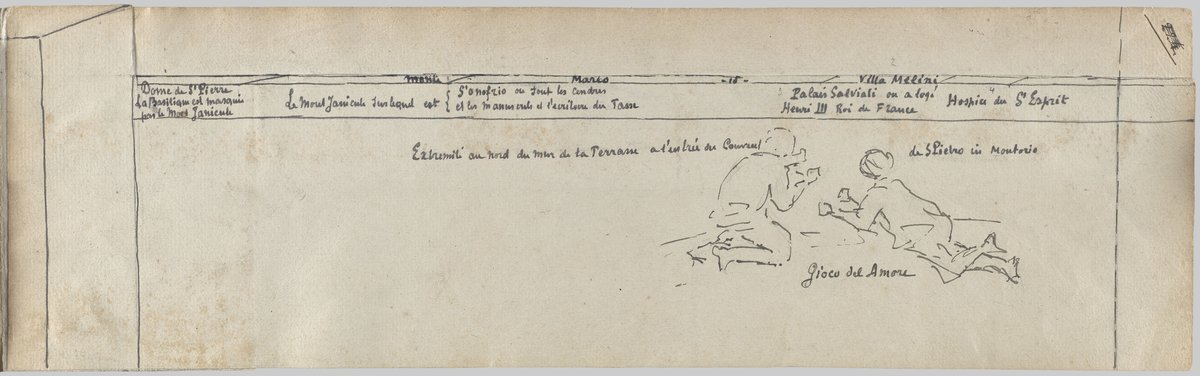 Monte Mario - 15 - Villa Mélini
Dome de St Pierre
La Basilique est masquée
par le Mont Janicule
Le Mont Janicule sur lequel est
S'onofrio ou sont les cendres
et les manuscrits et l'ecriture du Tasse
Palais Salviati ou a logé
Henri III Roi de France
Hospice du St Esprit
Extremité au nord du mur de la Terrasse a l'entrée du Couvent
de S Pietro in Montorio
Gioco del Amore